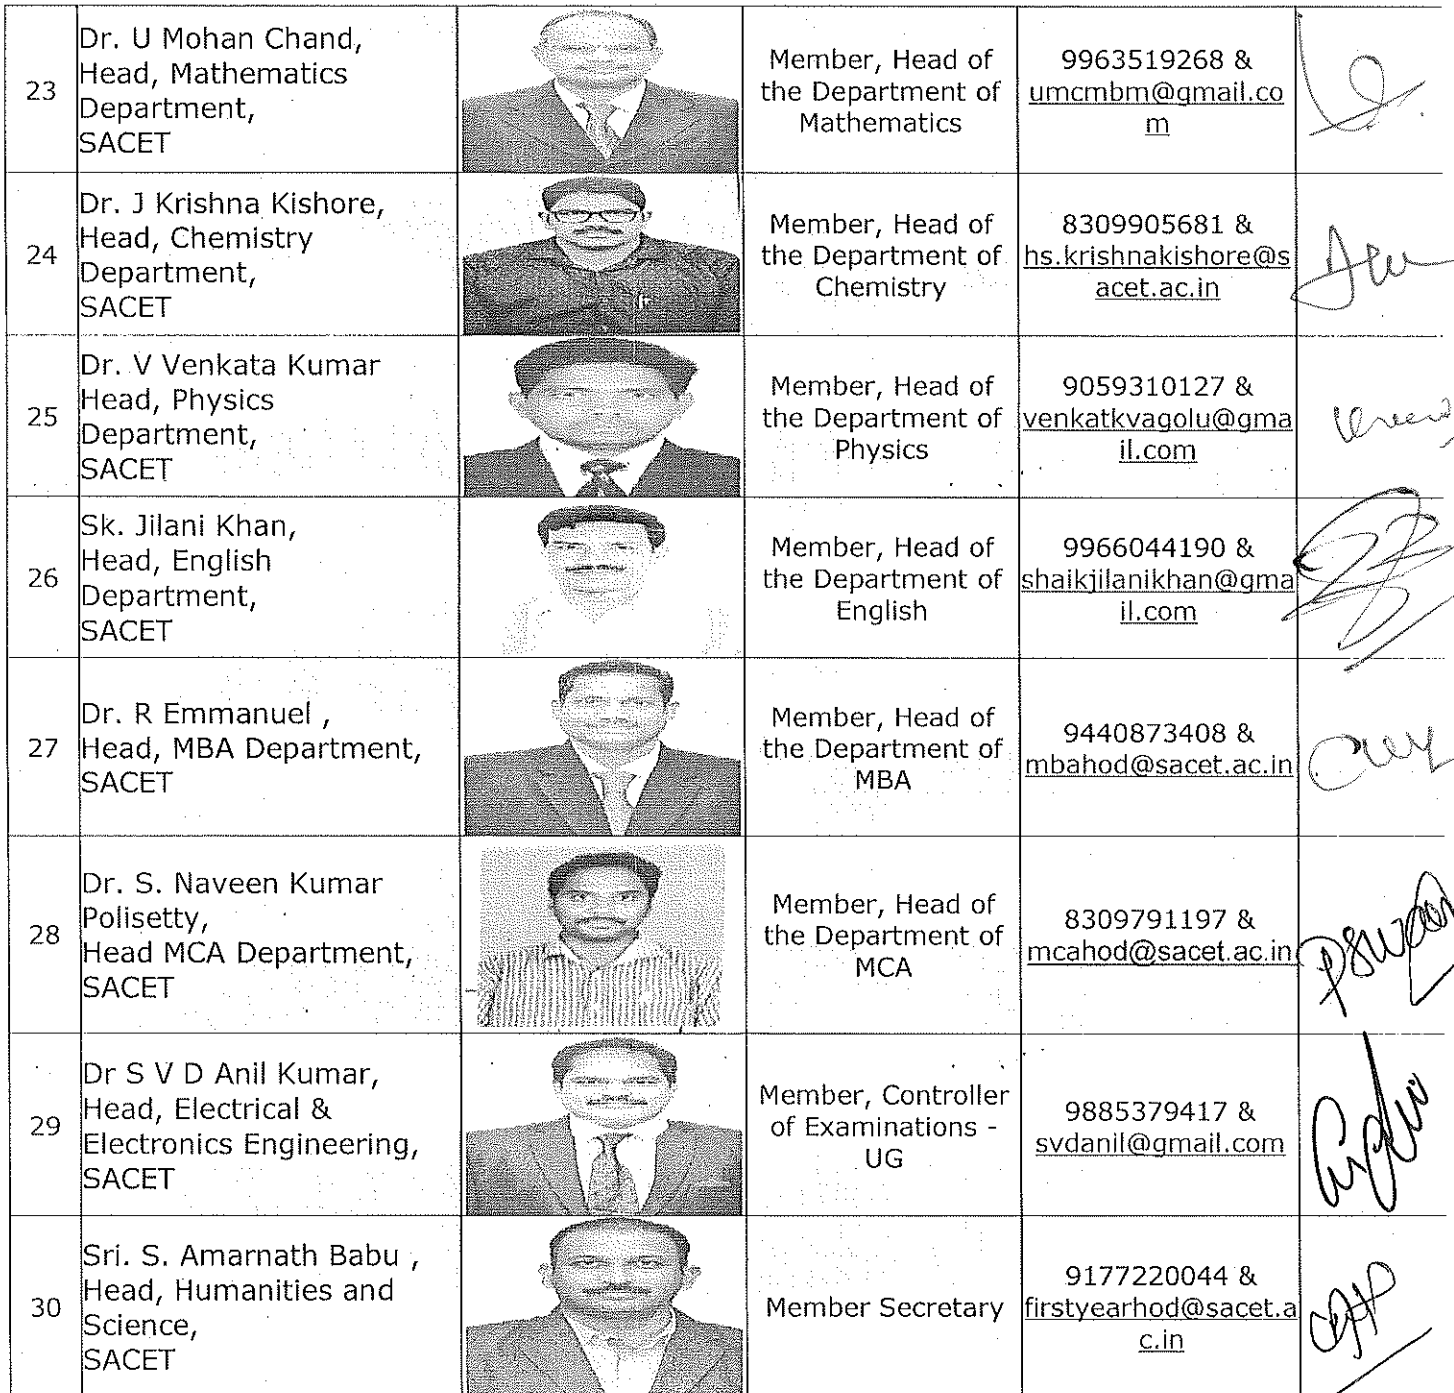 23
Dr. U Mohan Chand,
Head, Mathematics
Department,
SACET
Member, Head of
the Department of
Mathematics
9963519268 &
umcmbm@gmail.co
m
24
Dr. J Krishna Kishore,
Head, Chemistry
Department,
SACET
Member, Head of
the Department of
Chemistry
8309905681 &
hs.krishnakishore@s
acet.ac.in
25
Dr. V Venkata Kumar
Head, Physics
Department,
SACET
Member, Head of
the Department of
Physics
9059310127 &
venkatkvagolu@gma
il.com
26
Sk. Jilani Khan,
Head, English
Department,
SACET
Member, Head of
the Department of
English
9966044190 &
shaikjilanikhan@gma
il.com
27
Dr. R Emmanuel ,
Head, MBA Department,
SACET
Member, Head of
the Department of
MBA
9440873408 &
mbahod@sacet.ac.in
28
Dr. S. Naveen Kumar
Polisetty,
Head MCA Department,
SACET
Member, Head of
the Department of
MCA
8309791197 &
mcahod@sacet.ac.in
29
Dr S V D Anil Kumar,
Head, Electrical &
Electronics Engineering,
SACET
Member, Controller
of Examinations -
UG
9885379417 &
svdanil@gmail.com
30
Sri. S. Amarnath Babu ,
Head, Humanities and
Science,
SACET
Member Secretary
9177220044 &
firstyearhod@sacet.a
c.in